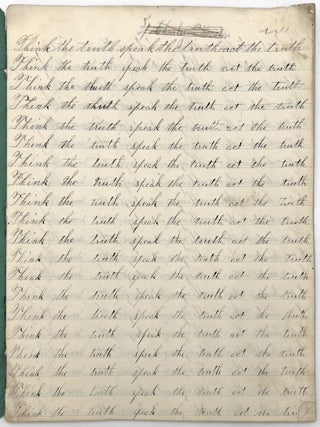 Think the truth speak the truth act the truth
Think the truth speak the truth act the truth
Think the truth speak the truth act the truth
Think the truth speak the truth act the truth
Think the truth speak the truth act the truth
Think the truth speak the truth act the truth
Think the truth speak the truth act the truth
Think the truth speak the truth act the truth
Think the truth speak the truth act the truth
Think the truth speak the truth act the truth
Think the truth speak the truth act the truth
Think the truth speak the truth act the truth
Think the truth speak the truth act the truth
Think the truth speak the truth act the truth
Think the truth speak the truth act the truth
Think the truth speak the truth act the truth
Think the truth speak the truth act the truth
Think the truth speak the truth act the truth
Think the truth speak the truth act the truth
Think the truth speak the truth act the